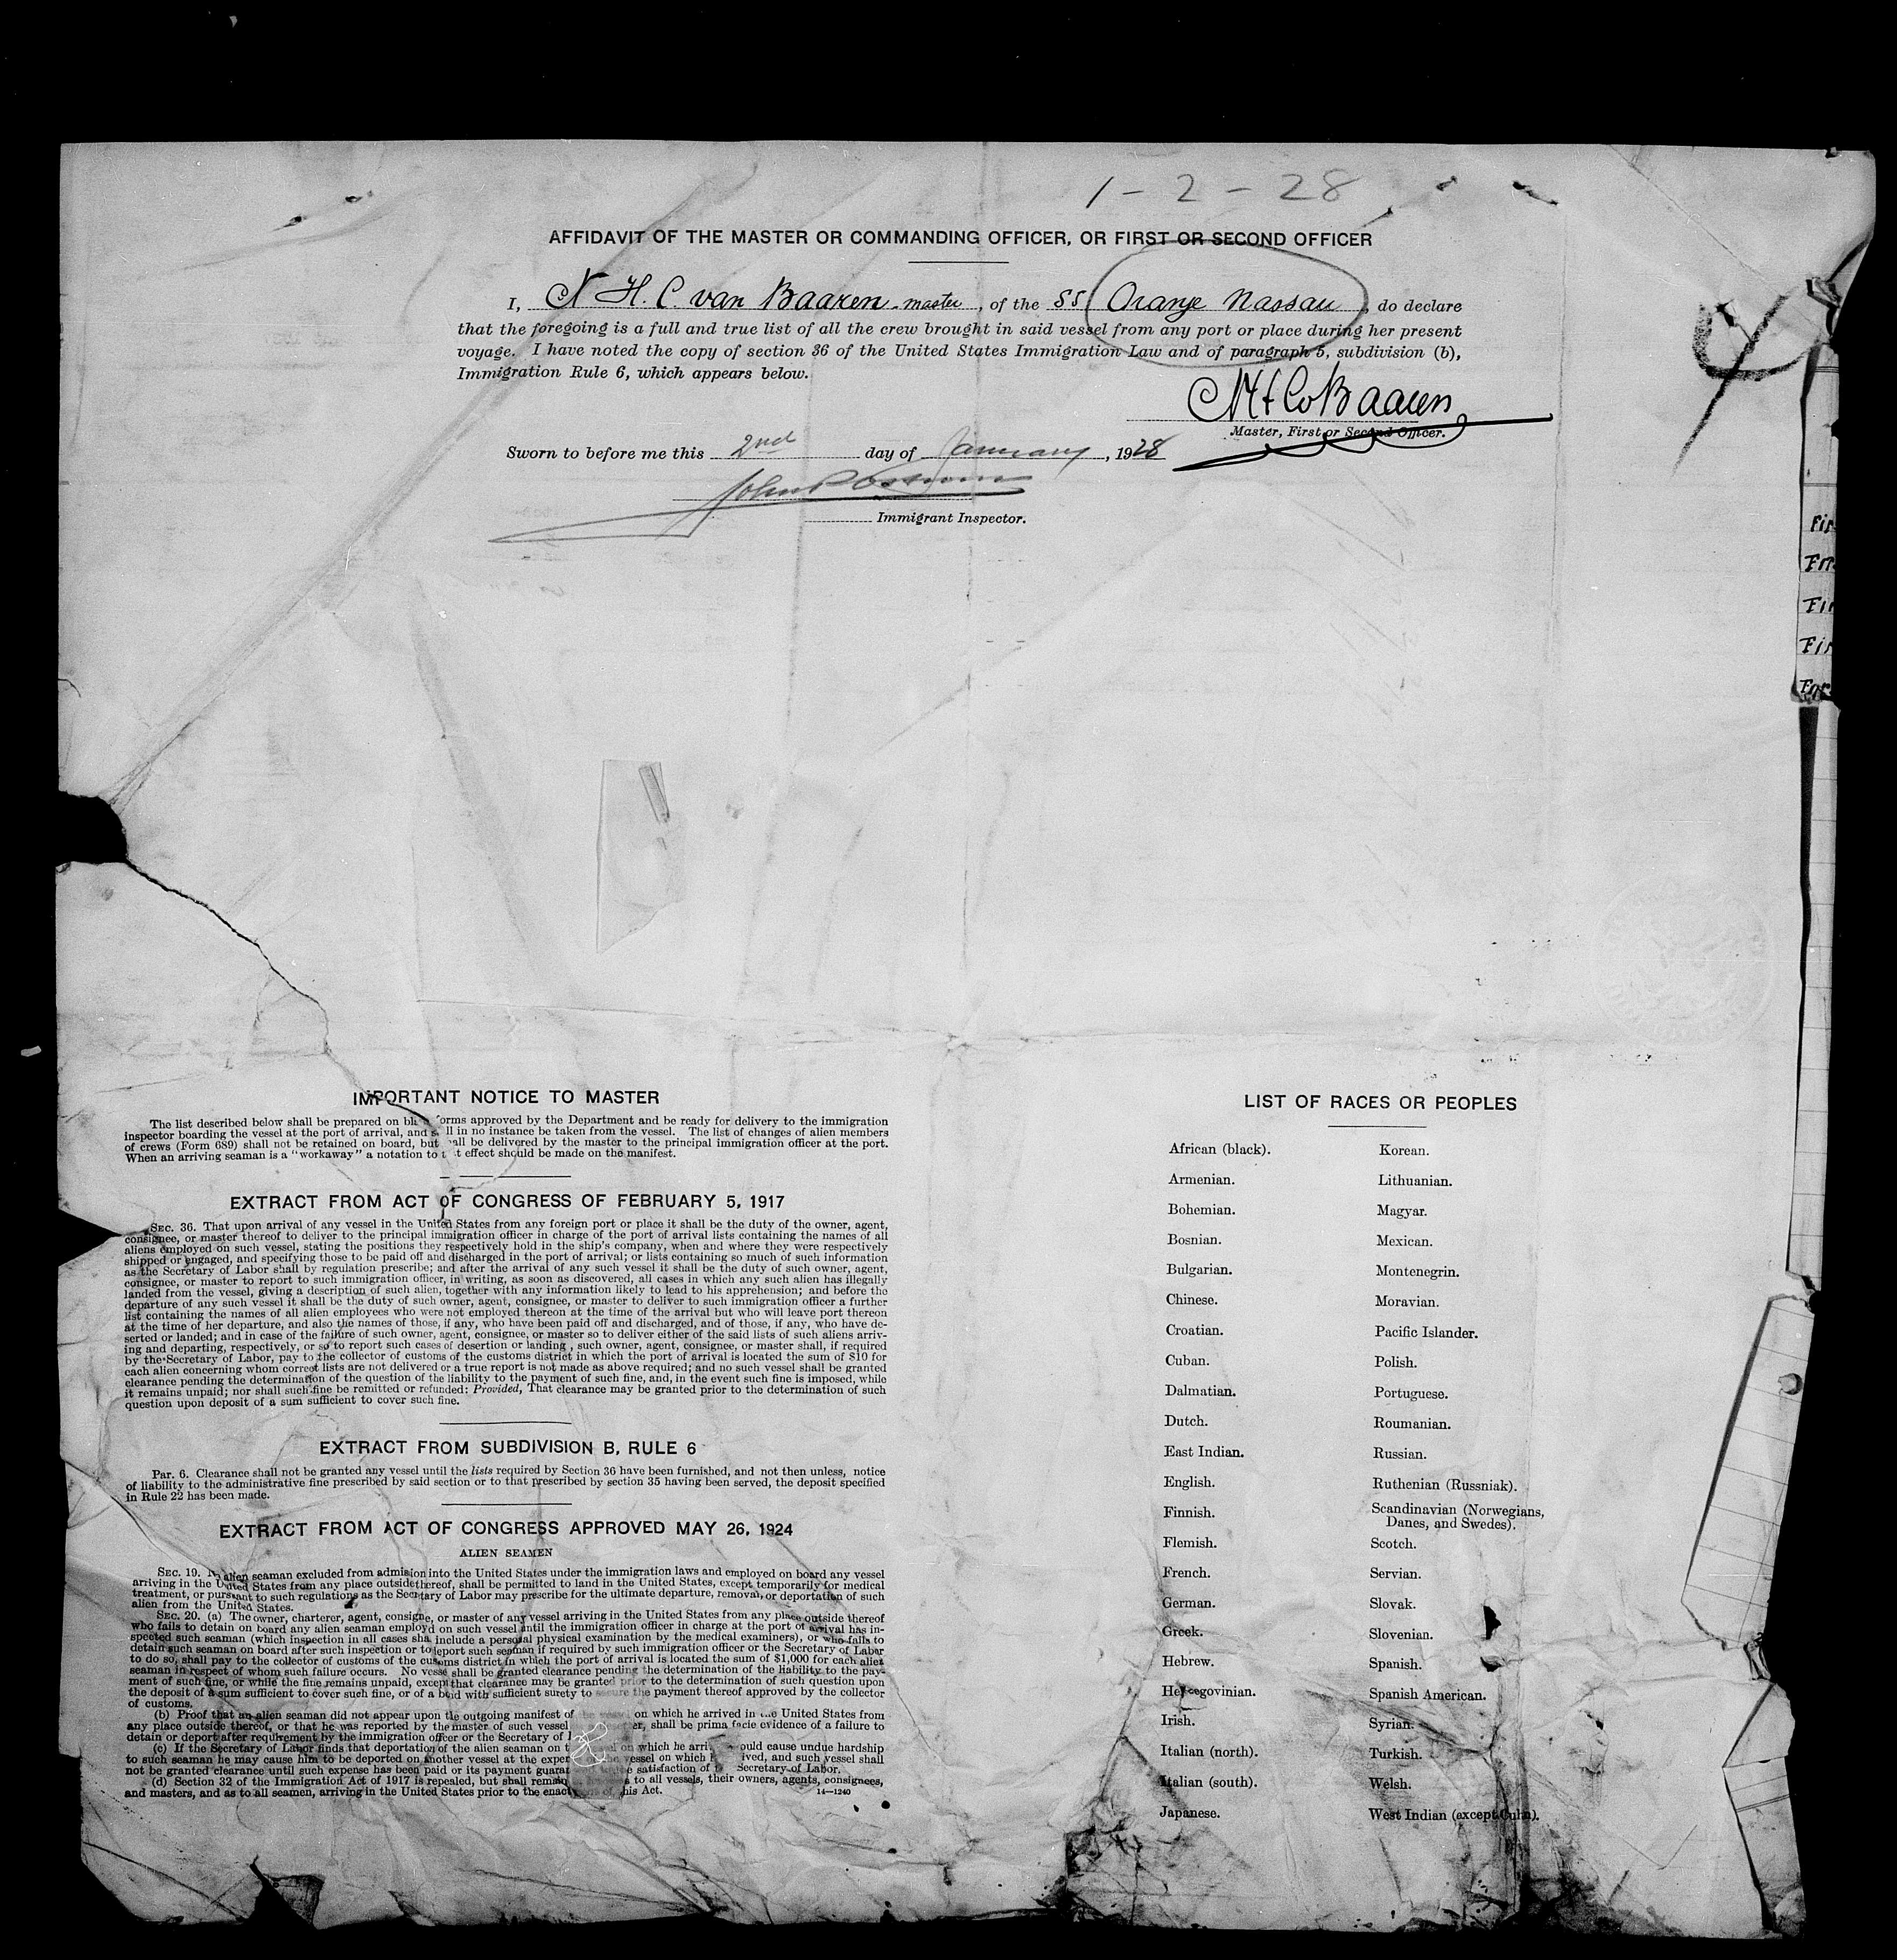 1-2-28
AFFIDAVIT OF THE MASTER OR COMMANDING OFFICER, OR FIRST OR SECOND OFFICER
I, N H. C. van Baaren - master, of the SS Oranje Nassau, do declare
that the foregoing is a full and true list of all the crew brought in said vessel from any port or place during her present
voyage. I have noted the copy of section 36 of the United States Immigration Law and of paragraph 5, subdivision (b),
Immigration Rule 6, which appears below.
Baaren
Master, First or Second Officer.
Sworn to before me this 2nd day of January, 1928
John
Immigrant Inspector.
Fir
Fir
Fir
IMPORTANT NOTICE TO MASTER
The list described below shall be prepared on bla orms approved by the Department and be ready for delivery to the immigration
inspector boarding the vessel at the port of arrival, and s ll in no instance be taken from the vessel. The list of changes of alien members
of crews (Form 689) shall not be retained on board, but all be delivered by the master to the principal immigration officer at the port.
When an arriving seaman is a "workaway" a notation to t t effect should be made on the manifest.
EXTRACT FROM ACT OF CONGRESS OF FEBRUARY 5, 1917
SEC. 36. That upon arrival of any vessel in the United States from any foreign port or place it shall be the duty of the owner, agent,
consignee, or master thereof to deliver to the principal immigration officer in charge of the port of arrival lists containing the names of all
aliens employed on such vessel, stating the positions they respectively hold in the ship's company, when and where they were respectively
shipped or engaged, and specifying those to be paid off and discharged in the port of arrival; or lists containing so much of such information
as the Secretary of Labor shall by regulation prescribe; and after the arrival of any such vessel it shall be the duty of such owner, agent,
consignee, or master to report to such immigration officer, in writing, as soon as discovered, all cases in which any such alien has illegally
landed from the vessel, giving a description of such alien, together with any information likely to lead to his apprehension; and before the
departure of any such vessel it shall be the duty of such owner, agent, consignee, or master to deliver to such immigration officer a further
list containing the names of all alien employees who were not employed thereon at the time of the arrival but who will leave port thereon
at the time of her departure, and also the names of those, if any, who have been paid off and discharged, and of those, if any, who have de-
serted or landed; and in case of the failure of such owner, agent, consignee, or master so to deliver either of the said lists of such aliens arriv-
ing and departing, respectively, or so to report such cases of desertion or landing, such owner, agent, consignee, or master shall, if required
by the Secretary of Labor, pay to the collector of customs of the customs district in which the port of arrival is located the sum of $10 for
each alien concerning whom correct lists are not delivered or a true report is not made as above required; and no such vessel shall be granted
clearance pending the determination of the question of the liability to the payment of such fine, and, in the event such fine is imposed, while
it remains unpaid; nor shall such fine be remitted or refunded: Provided, That clearance may be granted prior to the determination of such
question upon deposit of a sum sufficient to cover such fine.
EXTRACT FROM SUBDIVISION B, RULE 6
Par. 6. Clearance shall not be granted any vessel until the lists required by Section 36 have been furnished, and not then unless, notice
of liability to the administrative fine prescribed by said section or to that prescribed by section 35 having been served, the deposit specified
in Rule 22 has been made.
EXTRACT FROM ACT OF CONGRESS APPROVED MAY 26, 1924
ALIEN SEAMEN
SEC. 19. No alien seaman excluded from admission into the United States under the immigration laws and employed on board any vessel
arriving in the United States from any place outside thereof, shall be permitted to land in the United States, except temporarily for medical
treatment, or pursuant to such regulations as the Secretary of Labor may prescribe for the ultimate departure, removal, or deportation of such
alien from the United States.
SEC. 20. (a) The owner, charterer, agent, consigne, or master of any vessel arriving in the United States from any place outside thereof
who fails to detain on board any alien seaman employd on such vessel until the immigration officer in charge at the port of arrival has in-
spected such seaman (which inspection in all cases sha include a personal physical examination by the medical examiners), or who fails to
detain such seaman on board after such inspection or to deport such seaman if required by such immigration officer or the Secretary of Labor
to do so, shall pay to the collector of customs of the customs district in which the port of arrival is located the sum of $1,000 for each alien
seaman in respect of whom such failure occurs. No vesse shall be granted clearance pending the determination of the liability to the pay-
ment of such fine, or while the fine remains unpaid, except that clearance may be granted prior to the determination of such question upon
the deposit of a sum sufficient to cover such fine, or of a bond with sufficient surety to secure the payment thereof approved by the collector
of customs.
(b) Proof that an alien seaman did not appear upon the outgoing manifest of the vessel on which he arrived in the United States from
any place outside thereof, or that he was reported by the master of such vessel er, shall be prima facie evidence of a failure to
detain or deport after requirement by the immigration officer or the Secretary of l
(c) If the Secretary of Labor finds that deportation of the alien seaman on t on which he arri ould cause undue hardship
to such seaman he may cause him to be deported on another vessel at the exper vessel on which h ived, and such vessel shall
not be granted clearance until such expense has been paid or its payment guarar e satisfaction of Secretary of Labor.
(d) Section 32 of the Immigration Act of 1917 is repealed, but shall remain to all vessels, their owners, agents, consignees,
and masters, and as to all seamen, arriving in the United States prior to the enact his Act.
14—1240
LIST OF RACES OR PEOPLES
African (black).
Armenian.
Bohemian.
Bosnian.
Bulgarian.
Chinese.
Croatian.
Cuban.
Dalmatian.
Dutch.
East Indian.
English.
Finnish.
Flemish.
French.
German.
Greek.
Hebrew.
Hercegovinian.
Irish.
Italian (north).
Italian (south).
Japanese.
Korean.
Lithuanian.
Magyar.
Mexican.
Montenegrin.
Moravian.
Pacific Islander.
Polish.
Portuguese.
Roumanian.
Russian.
Ruthenian (Russniak).
Scandinavian (Norwegians,
Danes, and Swedes).
Scotch.
Servian.
Slovak.
Slovenian.
Spanish.
Spanish American.
Syrian.
Turkish.
Welsh.
West Indian (except Cuba).